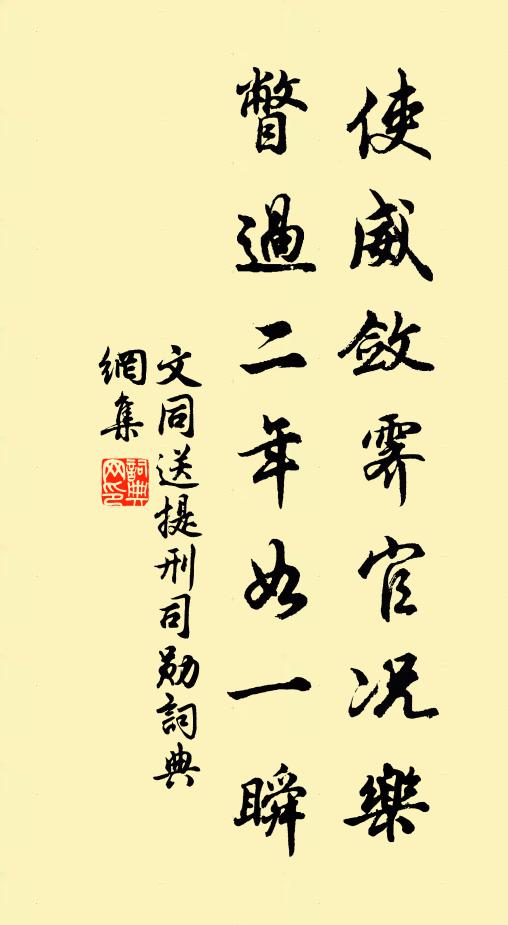 使威斂霽官况樂
瞥過二年如一瞬
文同送提刑司勛詞典
網集
詞典網印